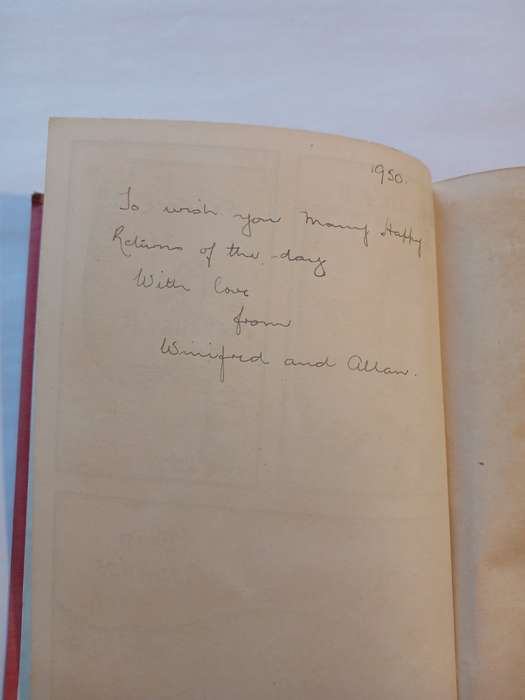 1950.
To wish you Many Happy
Returns of the day
With love
from
Winifred and Allan.